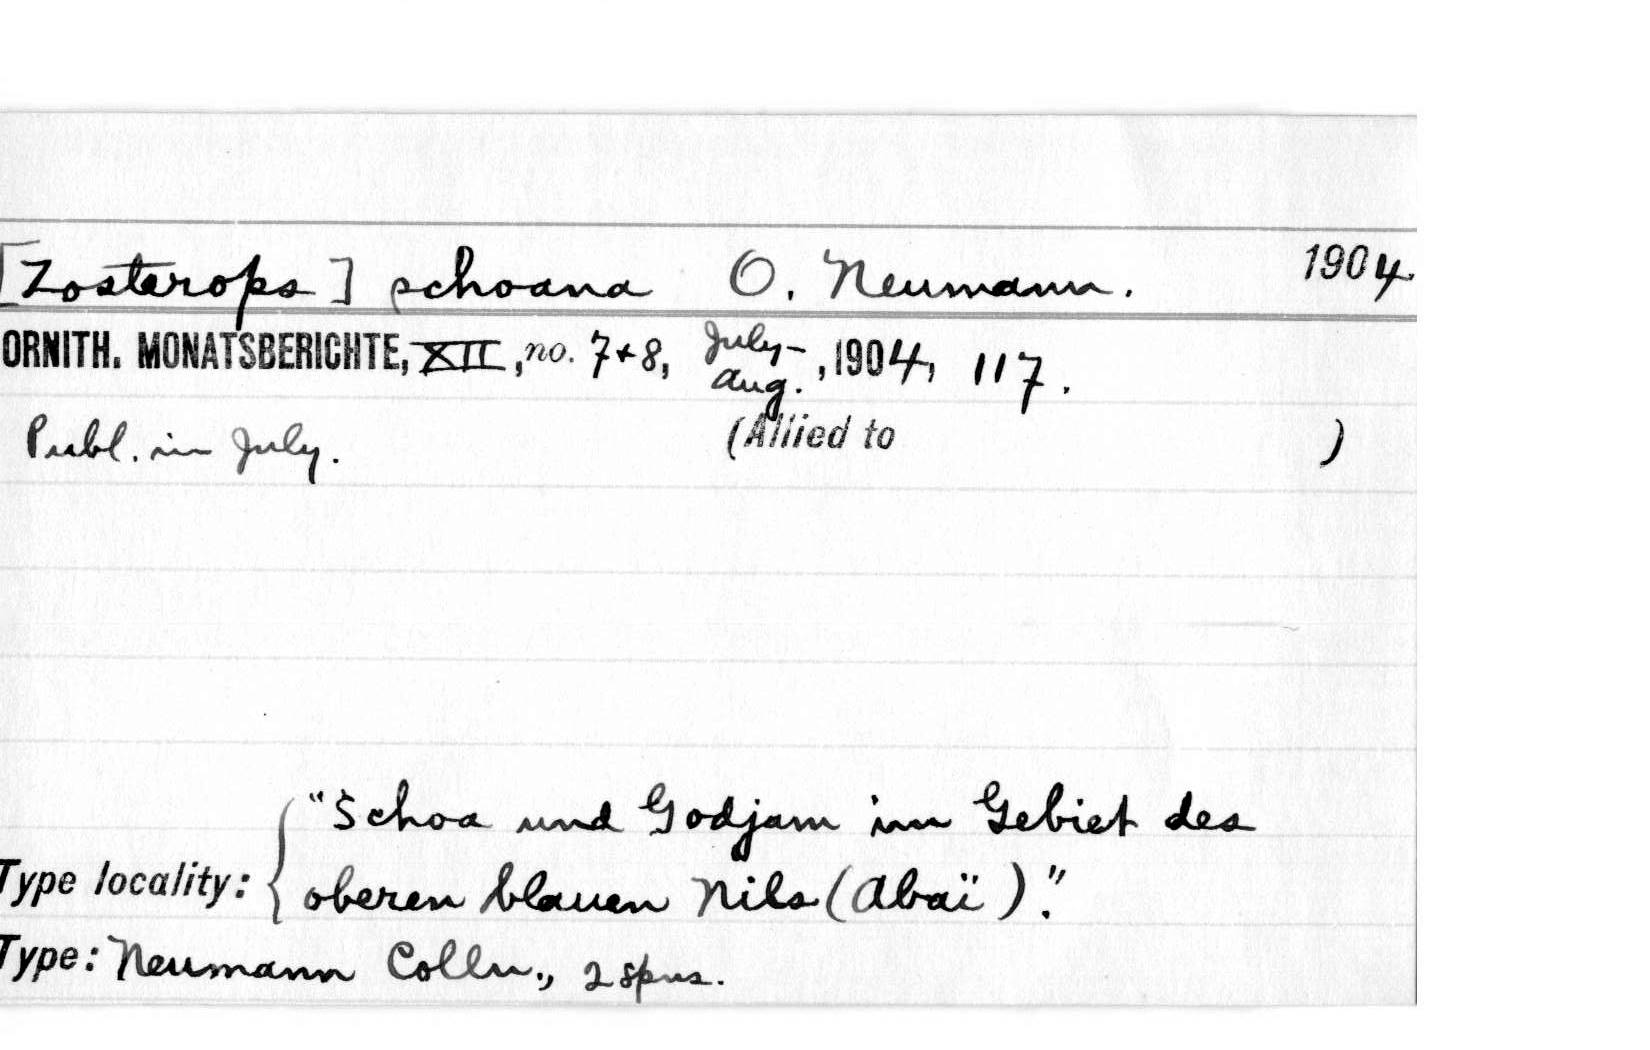 [Zosterops] schoana O. Neumann. 1904
ORNITH. MONATSBERICHTE, XII, no. 7+8, July-Aug., 1904, 117.
Publ. in July. (Allied to )
Type locality: { "Schoa und Godjam im Gebiet des
oberen blauen Nils (Abaï)."
Type: Neumann Colln., 2 spns.